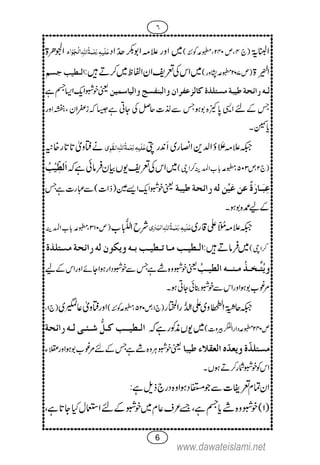 ٦
البنایۃ" (ج ۴، ص ۲۳۰، مطبوعہ کوئٹہ) میں اور علامہ ابوبکر حداد عَلَیْہِ رَحْمَۃُ اللہِ الْجَوَاد "الجوہرۃ
النیرۃ" (ص ۲۰۷، مطبوعہ پشاور) میں اس کی تعریف ان الفاظ میں کرتے ہیں: "الطیب جسم
لہ رائحۃ طیبۃ مستلذۃ کالزعفران والبنفسج والیاسمین" یعنی خوشبو ایک ایسا جسم ہے
جس کے لئے ایسی پاکیزہ بو ہو جس سے لذت حاصل کی جاتی ہے جیسا کہ زعفران، بنفشہ اور
یاسمین۔
جبکہ علامہ علاؤ الدین انصاری اندرپتی عَلَیْہِ رَحْمَۃُ اللہِ الْقَوِی نے فتاویٰ تاتارخانیہ
میں اس کی تعریف یوں بیان فرمائی ہے کہ "اَلطِّیْبُ
عِبَارَۃٌ عَنْ عَیْنٍ لہ رائحۃ طیبۃ" یعنی خوشبو ایک ایسے عین (ذات) سے عبارت ہے جس
کے لیے عمدہ بو ہو۔
جبکہ علامہ ملا علی قاری عَلَیْہِ رَحْمَۃُ اللہِ الْبَارِی شرح اللباب (ص ۳۱۰، مطبوعہ باب المدینہ
کراچی) میں فرماتے ہیں: "الطیب ما تطیب بہ ویکون لہ رائحۃ مستلذۃ
ویتخذ منہ الطیب" یعنی خوشبو وہ شے ہے جس سے خوشبودار ہوا جائے اور اس کے لیے
مرغوب بو ہو اور اس سے خوشبو بنائی جاتی ہو۔
جبکہ حاشیۃ الطحطاوی علی الدر المختار (ج ۱، ص ۵۲۰، مطبوعہ کوئٹہ) اور فتاویٰ عالمگیری (ج ۱،
ص ۲۴۰، مطبوعہ دار الفکر بیروت) میں یوں مذکور ہے کہ "الطیب کل شیء لہ رائحۃ
مستلذۃ ویعدہ العقلاء طیبا" یعنی خوشبو ہر وہ شے ہے جس کے لئے مرغوب بو ہو اور عقلاء
اس کو خوشبو شمار کرتے ہوں۔
ان تمام تعریفات سے جو مستفاد ہوا وہ درج ذیل ہے:
(۱) خوشبو وہ شے یا جسم ہے، جسے عرف عام میں خوشبو کے لئے استعمال کیا جاتا ہے،
6
www.dawateislami.net